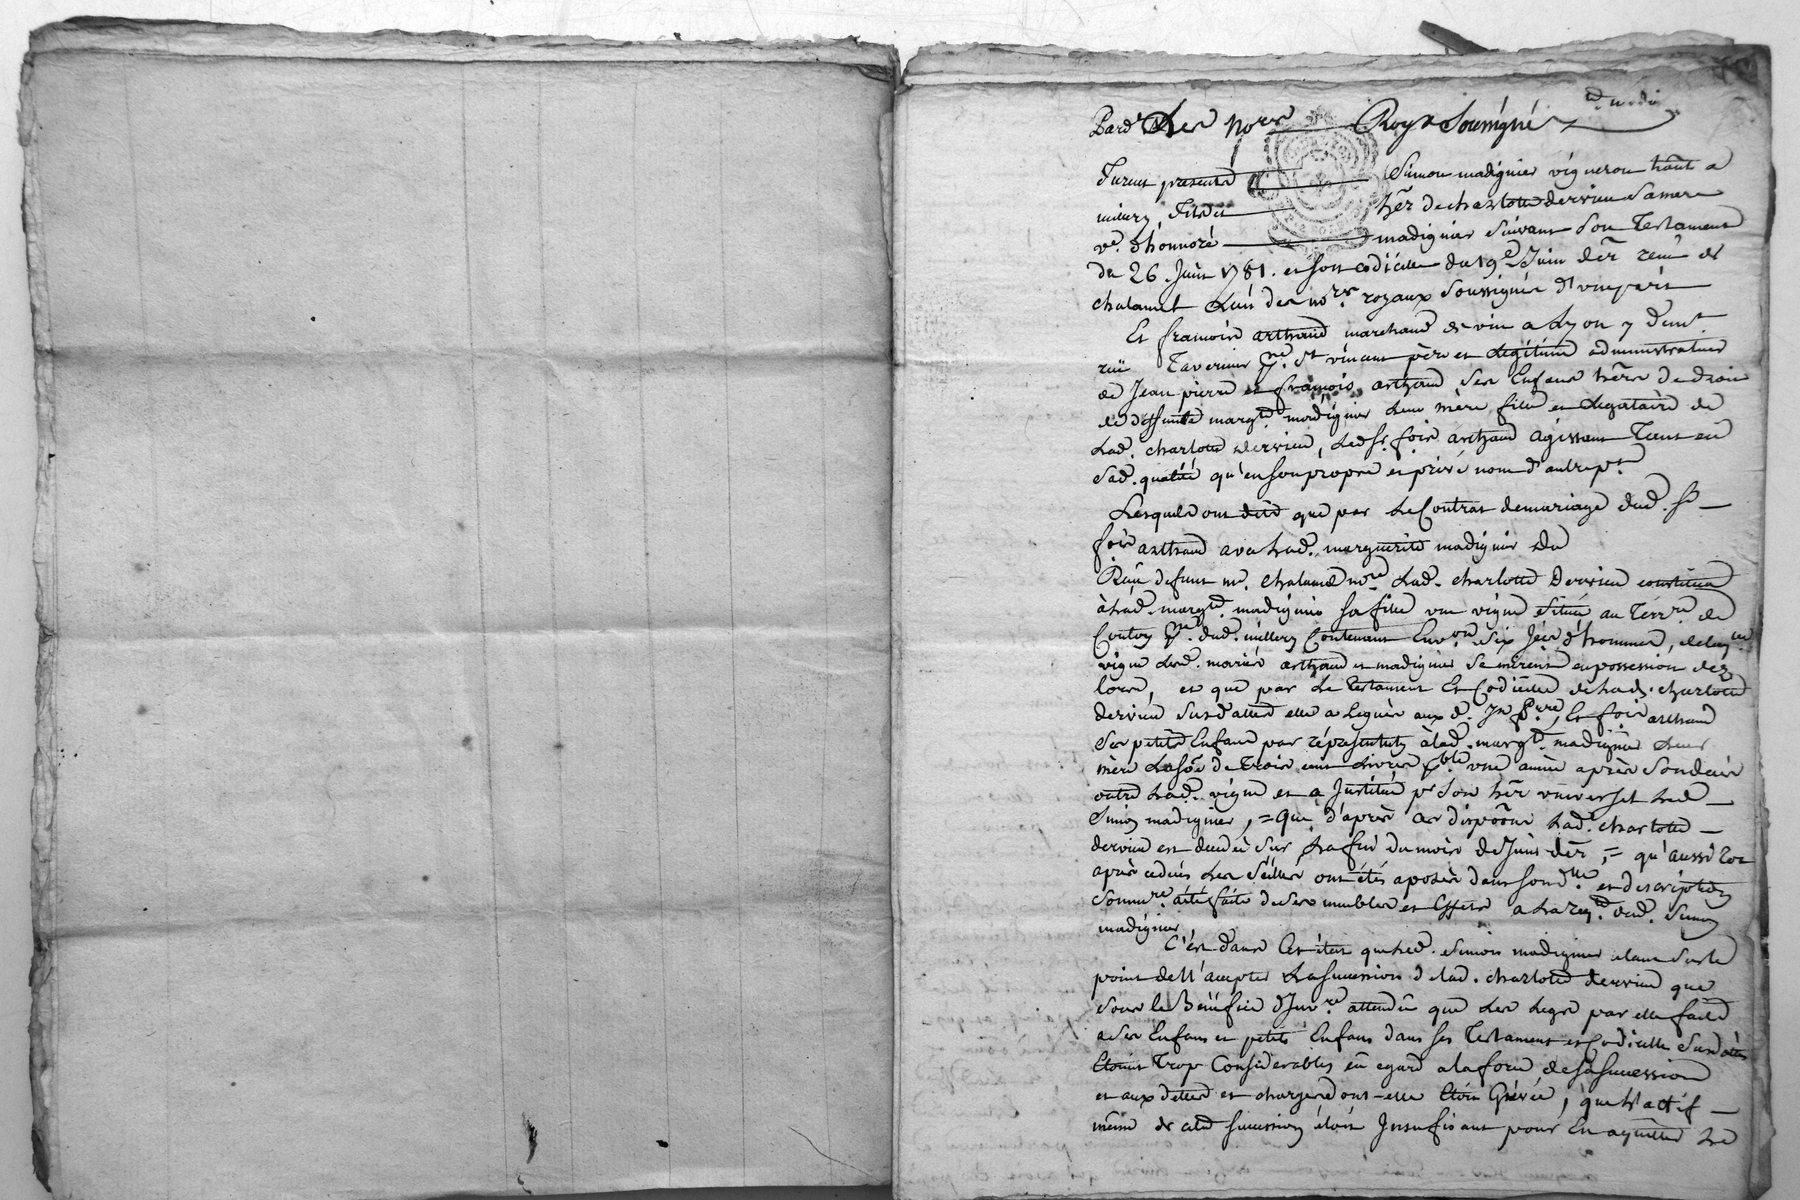 Pard.t Les No.res Roy.x Soussignés
furent presents Simon madignier vigneron hant a
millery, héer de charlotte dervieu sa mere
v.e d'honnoré madignier suivant son Testament
du 26. Juin 1781. et son codicille du 19.e Juin der reçu de
chalamel L'un des no.res royaux soussignés d'une part
Et francois arthaud marchand de vin a Lyon y dem.t
rüe Tavernier p.sse S.t vincent père et Legitime administrateur
de Jean pierre et francois arthaud ses Enfans héers de droit
de deffunte marg.te madignier Leur mère fille et Legataire de
Lad. charlotte dervieu, Led. Sr. fois arthaud agissant Tant en
sad. qualité qu'en son propre et privé nom d'autre p.t
Lesquels ont dit que par Le Contrat de mariage dud. Sr
fois arthaud avec Lad. marguerite madignier du
Reçu defunt m.e chalamel no.re Lad. charlotte Dervieu constitua
à Lad. marg.te madignier sa fille une vigne située au Terr.re de
p.sse dud. millery Contenant Env.on six d'hommes, de laq.lle
vigne Lesd. mariés arthaud et madignier se mirent en possession dez
lors, et que par Le Testament Et Codicille de Lad. charlotte
dervieu Susdattés elle a Legué aux d. Jn P.rre, Et fois arthaud
ses petits Enfans par répresentat.n à Lad. marg.te madignier Leur
mère La somme de Trois cent Livres p.ble une année après son décès
outre Lad. vigne et a Institué p.r son héer universel Led
Simon madignier, = Que d'après ces dispoõns Lad. charlotte
dervieu est decedée sur La fin du mois de Juin der, = qu'aussitot
après ce décès Les scellés ont étés aposés dans son d.lle et description
somm.re a été faite de ses meubles et Effets a La req.te dud. Simon
madignier
C'est dans Cet état que Led. Simon madignier etant sur le
point de N'accepter La succession de Lad. charlotte dervieu que
sous le Bénéfice d'Inv.re attendû que Les Legs par elle faits
a ses Enfans et petits Enfans dans ses Testament et Codicille Susdatés
Etoient Trop Considerables eu egard a la force de sa succession
et aux dettes et charges dont elle Etoit Grévée, que L'actif
même de cette succession étoit Insufisant pour En aquitter Le